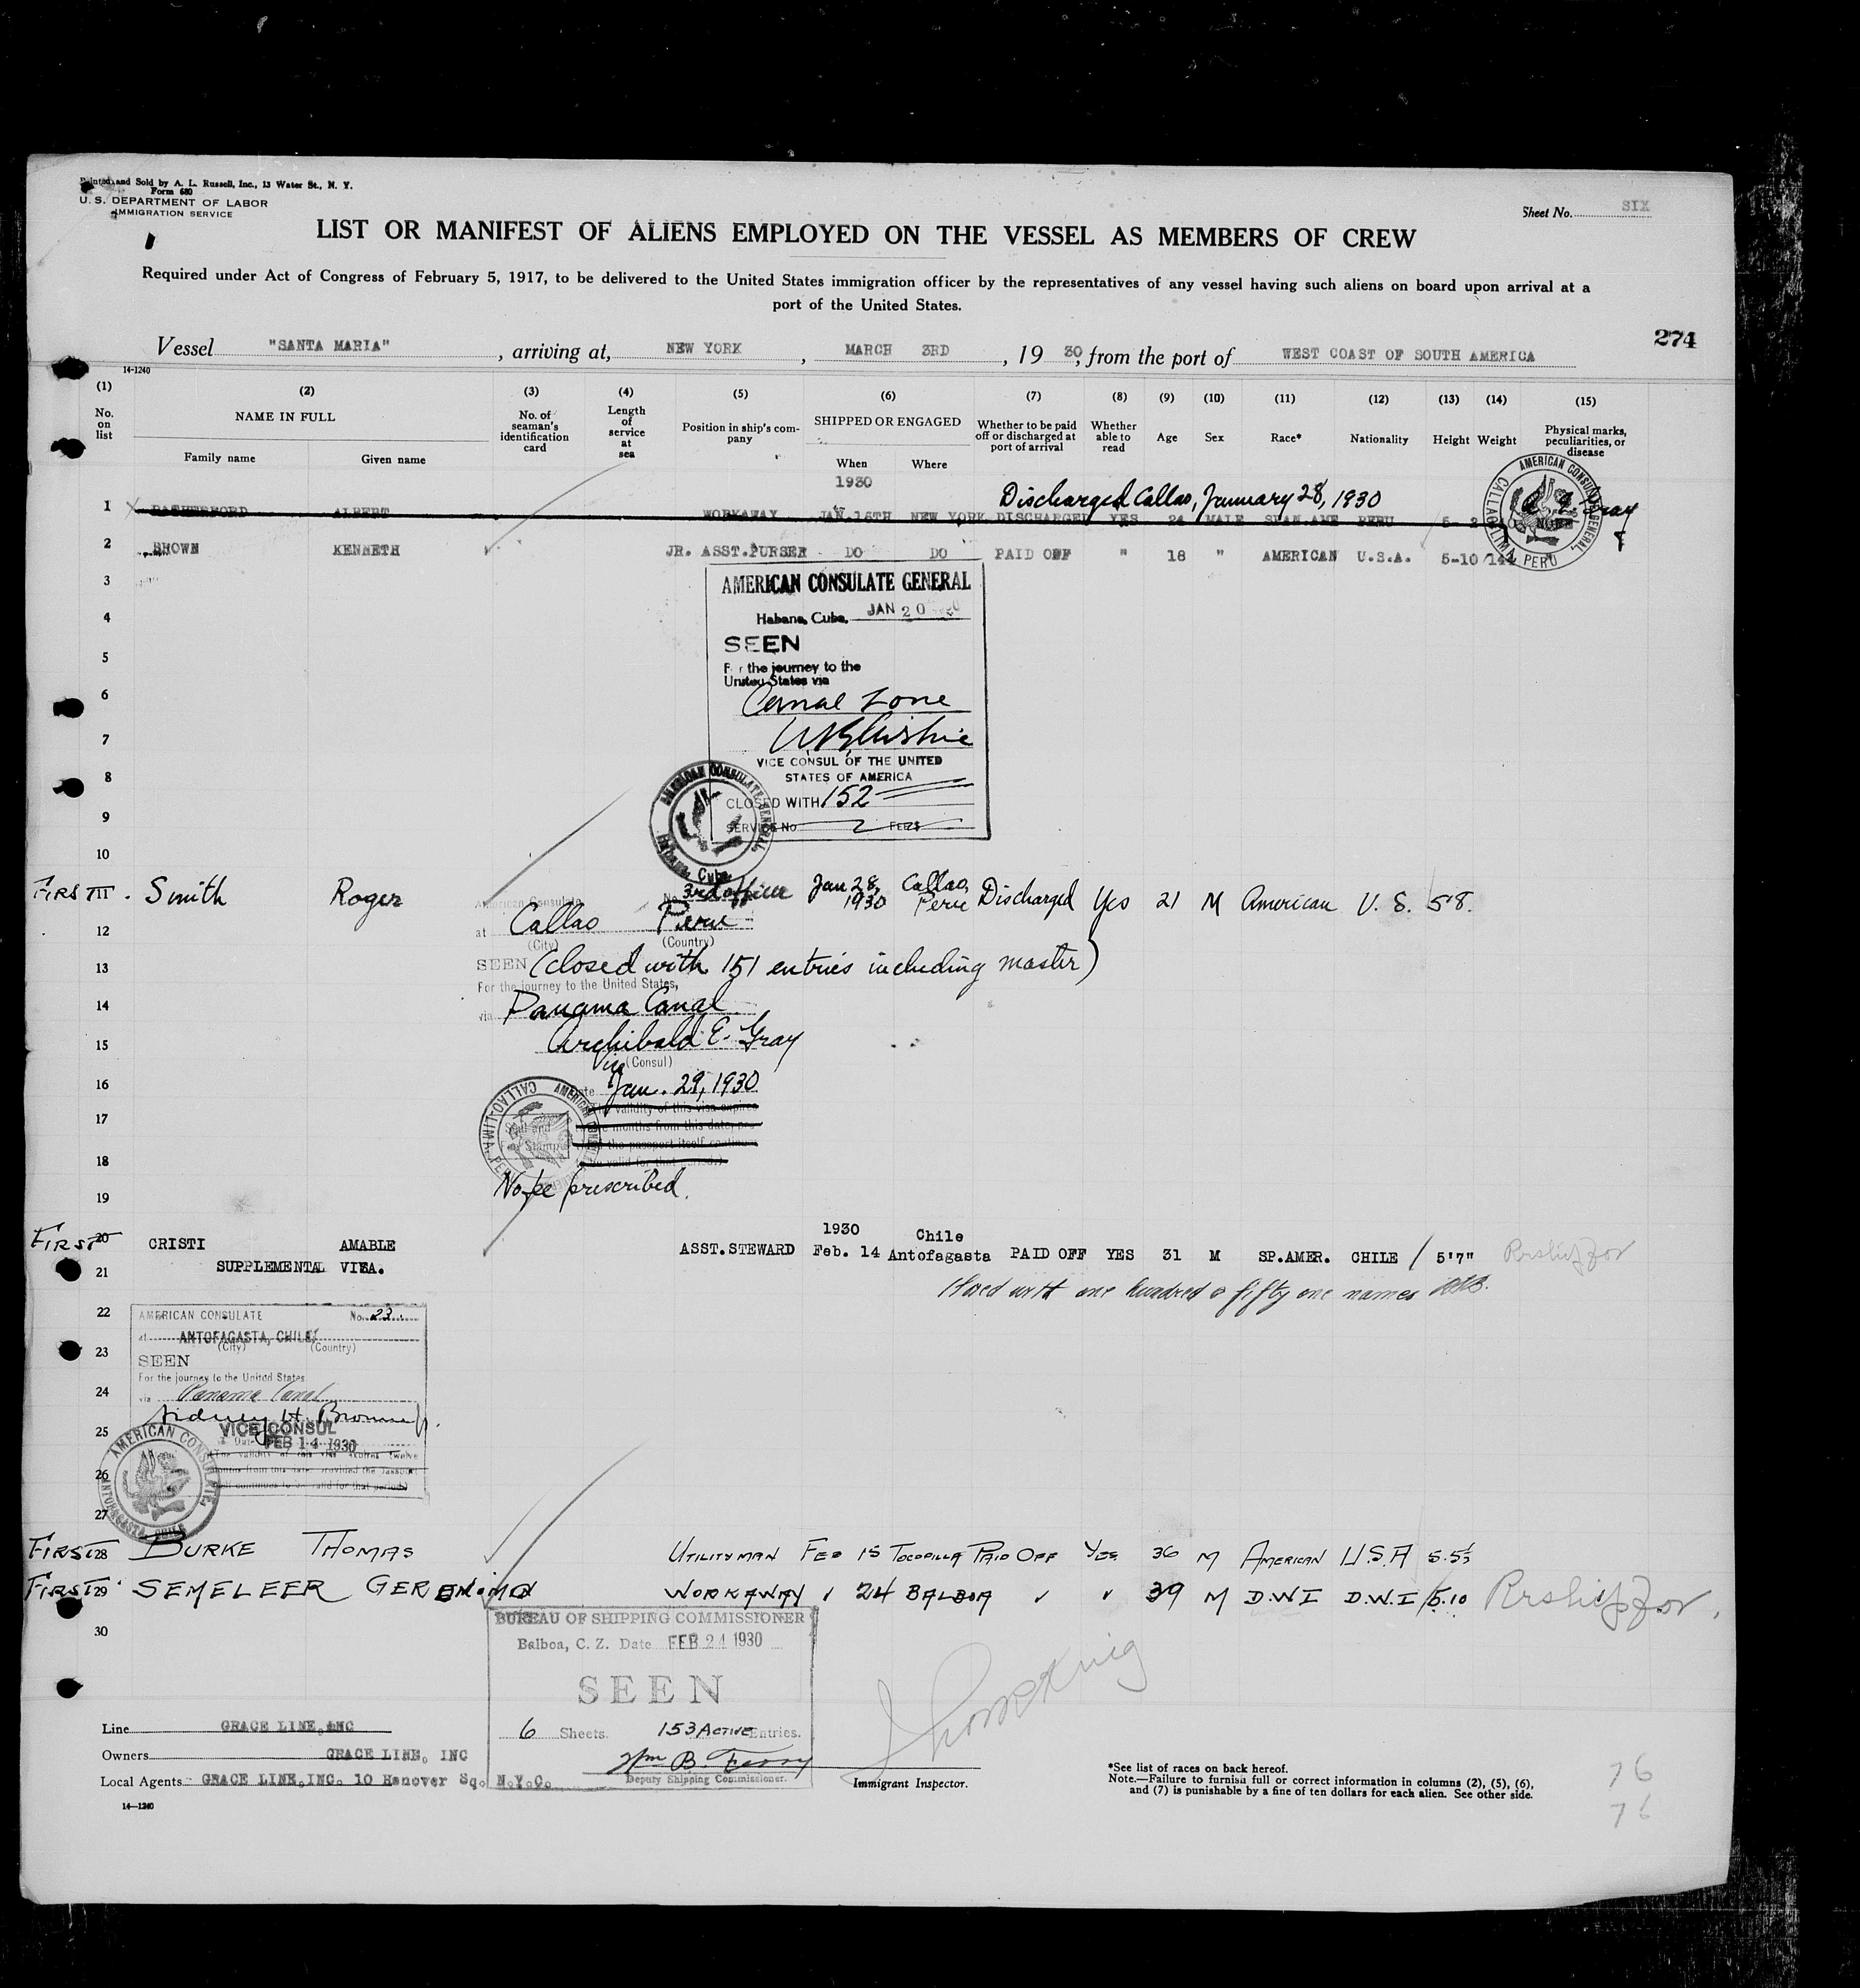 Printed and Sold by A. L. Russell, Inc., 13 Water St., N. Y.
Form 680
U. S. DEPARTMENT OF LABOR
IMMIGRATION SERVICE
Sheet No. SIX
LIST OR MANIFEST OF ALIENS EMPLOYED ON THE VESSEL AS MEMBERS OF CREW
Required under Act of Congress of February 5, 1917, to be delivered to the United States immigration officer by the representatives of any vessel having such aliens on board upon arrival at a
port of the United States.
274
Vessel "SANTA MARIA", arriving at, NEW YORK, MARCH 3RD, 19 30, from the port of WEST COAST OF SOUTH AMERICA
14-1240
(1) (2) (3) (4) (5) (6) (7) (8) (9) (10) (11) (12) (13) (14) (15)
No. on list
NAME IN FULL
Family name Given name
No. of seaman's identification card
Length of service at sea
Position in ship's company
SHIPPED OR ENGAGED
When Where
Whether to be paid off or discharged at port of arrival
Whether able to read
Age Sex Race* Nationality Height Weight
Physical marks, peculiarities, or disease
1930
Discharged Callao, January 28, 1930
1 ALBERT WORKAWAY JAN.16TH NEW YORK DISCHARGED YES 24 MALE SPAN.AME PERU
A. E. Gray
AMERICAN CONSULATE GENERAL, CALLAO-LIMA, PERU
2 BROWN KENNETH JR. ASST.PURSER DO DO PAID OFF " 18 " AMERICAN U.S.A. 5-10
3
4
5
6
7
8
9
10
AMERICAN CONSULATE GENERAL
Habana, Cuba, JAN 20
SEEN
For the journey to the
United States via
Canal Zone
VICE CONSUL OF THE UNITED
STATES OF AMERICA
CLOSED WITH 152
SERVICE No 2 FEES
AMERICAN CONSULATE GENERAL, Habana, Cuba
FIRST 11 Smith Roger 3rd officer Jan 28, 1930 Callao, Peru Discharged Yes 21 M American U. S. 5'8.
American Consulate No.
12
at Callao Peru
(City) (Country)
13
SEEN (closed with 151 entries including master)
For the journey to the United States,
14
via Panama Canal
15
Archibald E. Gray
Vice (Consul)
16
Date Jan. 29, 1930
17
18
19
No fee prescribed.
1930 Chile
FIRST 20 CRISTI AMABLE ASST.STEWARD Feb. 14 Antofagasta PAID OFF YES 31 M SP.AMER. CHILE 5'7"
21 SUPPLEMENTAL VISA.
Closed with one hundred & fifty one names
22
23
24
25
26
27
AMERICAN CONSULATE No. 23
at ANTOFAGASTA, CHILE
(City) (Country)
SEEN
For the journey to the United States
via Panama Canal
Sidney H. Browne Jr.
VICE CONSUL
Date FEB 14 1930
AMERICAN CONSULATE, ANTOFAGASTA, CHILE
FIRST 28 BURKE THOMAS UTILITYMAN FEB 15 TOCOPILLA PAID OFF YES 36 M AMERICAN U.S.A
FIRST 29 SEMELEER GERONIMO WORKAWAY " 24 BALBOA " " 39 M D.W.I D.W.I 5.10
30
BUREAU OF SHIPPING COMMISSIONER
Balboa, C. Z. Date FEB 24 1930
SEEN
6 Sheets. 153 ACTIVE Entries.
Deputy Shipping Commissioner.
Line GRACE LINE, INC
Owners GRACE LINE, INC
Local Agents GRACE LINE, INC. 10 Hanover Sq. N.Y.C.
14—1240
Immigrant Inspector.
*See list of races on back hereof.
Note.—Failure to furnish full or correct information in columns (2), (5), (6),
and (7) is punishable by a fine of ten dollars for each alien. See other side.
76
76